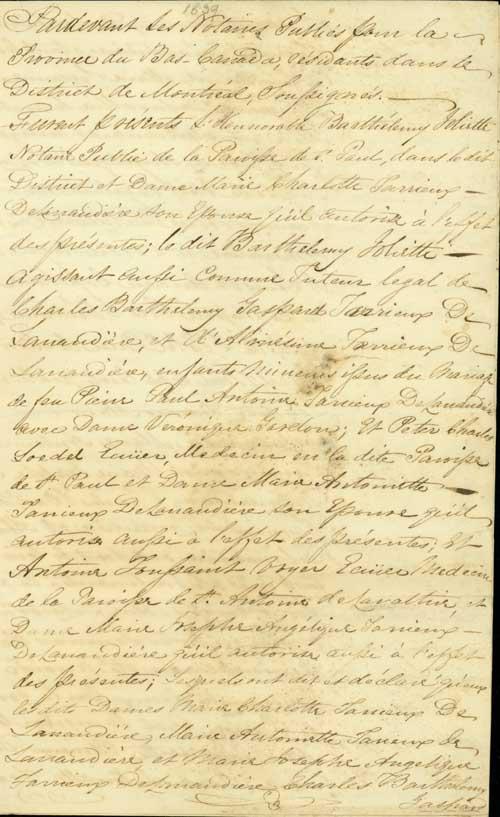 1839
Pardevant Les Notaires Publics pour la
Province du Bas Canada, résidants dans le
District de Montréal, Soussignés.
Furent présents L'Honnorable Barthelemy Joliette
Notaire Public de la Paroisse de St. Paul, dans le dit
District et Dame Marie Charlotte Tarrieux
DeLanaudière son Epouse qu'il autorise à l'effet
des présentes; le dit Barthelemy Joliette
Agissant aussi comme Tuteur legal de
Charles Barthelemy Gaspard Tarrieux De
Lanaudière, et d'Almésime Tarrieux De
Lanaudière, enfants mineurs issus du Mariage
de feu Pierre Paul Antoine Tarrieux DeLanaudière
avec Dame Véronique Gordon; Et Peter Charles
Loedel Ecuier, Medecin en la dite Paroisse
de St. Paul et Dame Marie Antoinette
Tarrieux DeLanaudière son Epouse qu'il
autorise aussi à l'effet des présentes; Et
Antoine Toussaint Voyer Ecuier Medecin
de la Paroisse de St. Antoine de Lavaltrie, et
Dame Marie Josephe Angélique Tarrieux
DeLanaudière qu'il autorise aussi à l'effet
des présentes; Lesquels ont dit et déclaré qu'eux
les dites Dames Marie Charlotte Tarrieux De
Lanaudière, Marie Antoinette Tarieux de
Lanaudière, et Marie Josephe Angelique
Tarrieux DeLanaudière, Charles Barthelemy
Gaspard